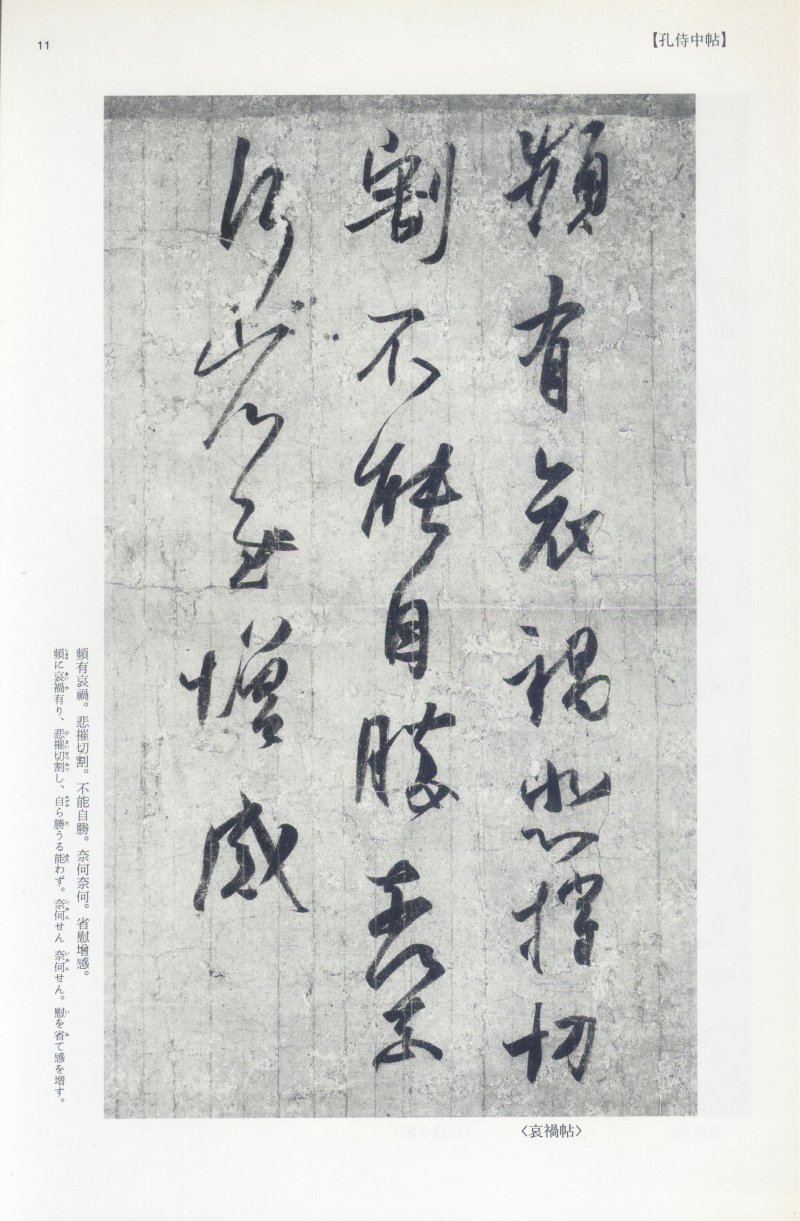 11
【孔侍中帖】
頻有哀禍悲摧切
割不能自勝奈何奈
何省慰增感
頻有哀禍。悲摧切割。不能自勝。奈何奈何。省慰增感。
頻に哀禍有り、悲摧切割し、自ら勝うる能わず。奈何せん 奈何せん。慰を省て感を増す。
〈哀禍帖〉